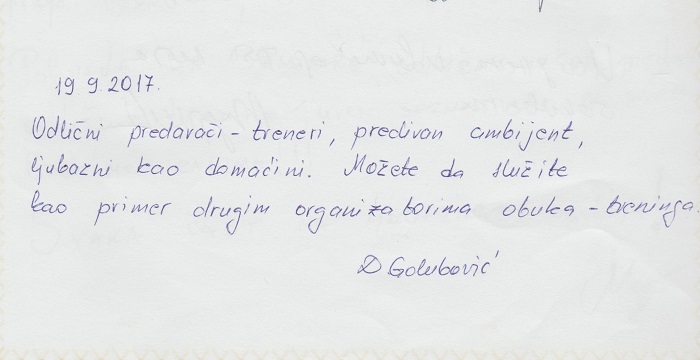 19 9. 2017.
Odlični predavači - treneri, predivan ambijent,
ljubazni kao domaćini. Možete da služite
kao primer drugim organizatorima obuka - treninga.
D Golubović